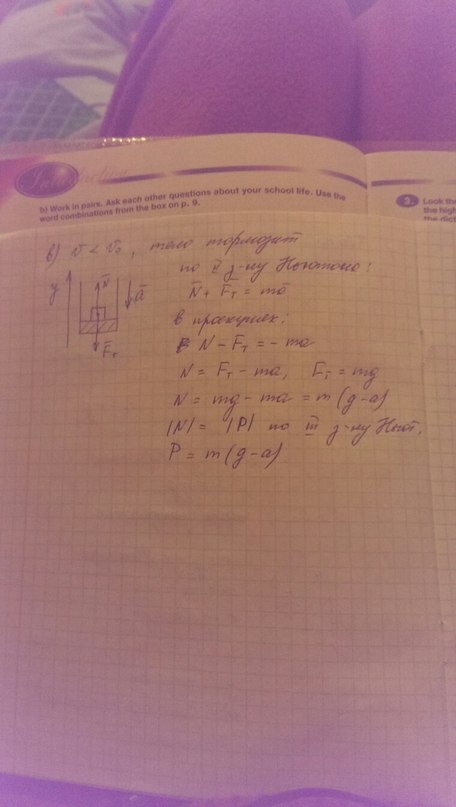 Introduction
b) Work in pairs. Ask each other questions about your school life. Use the
word combinations from the box on p. 9.
3. Look th
the high
the dict
в) v < v₀, тело тормозит
по II з-ну Ньютона:
N̄ + F̄т = mā
в проекциях:
N - Fт = - ma
N = Fт - ma, Fт = mg
N = mg - ma = m(g-a)
|N| = |P| по III з-ну Ньют.
P = m(g-a)
y
N̄
ā
F̄т